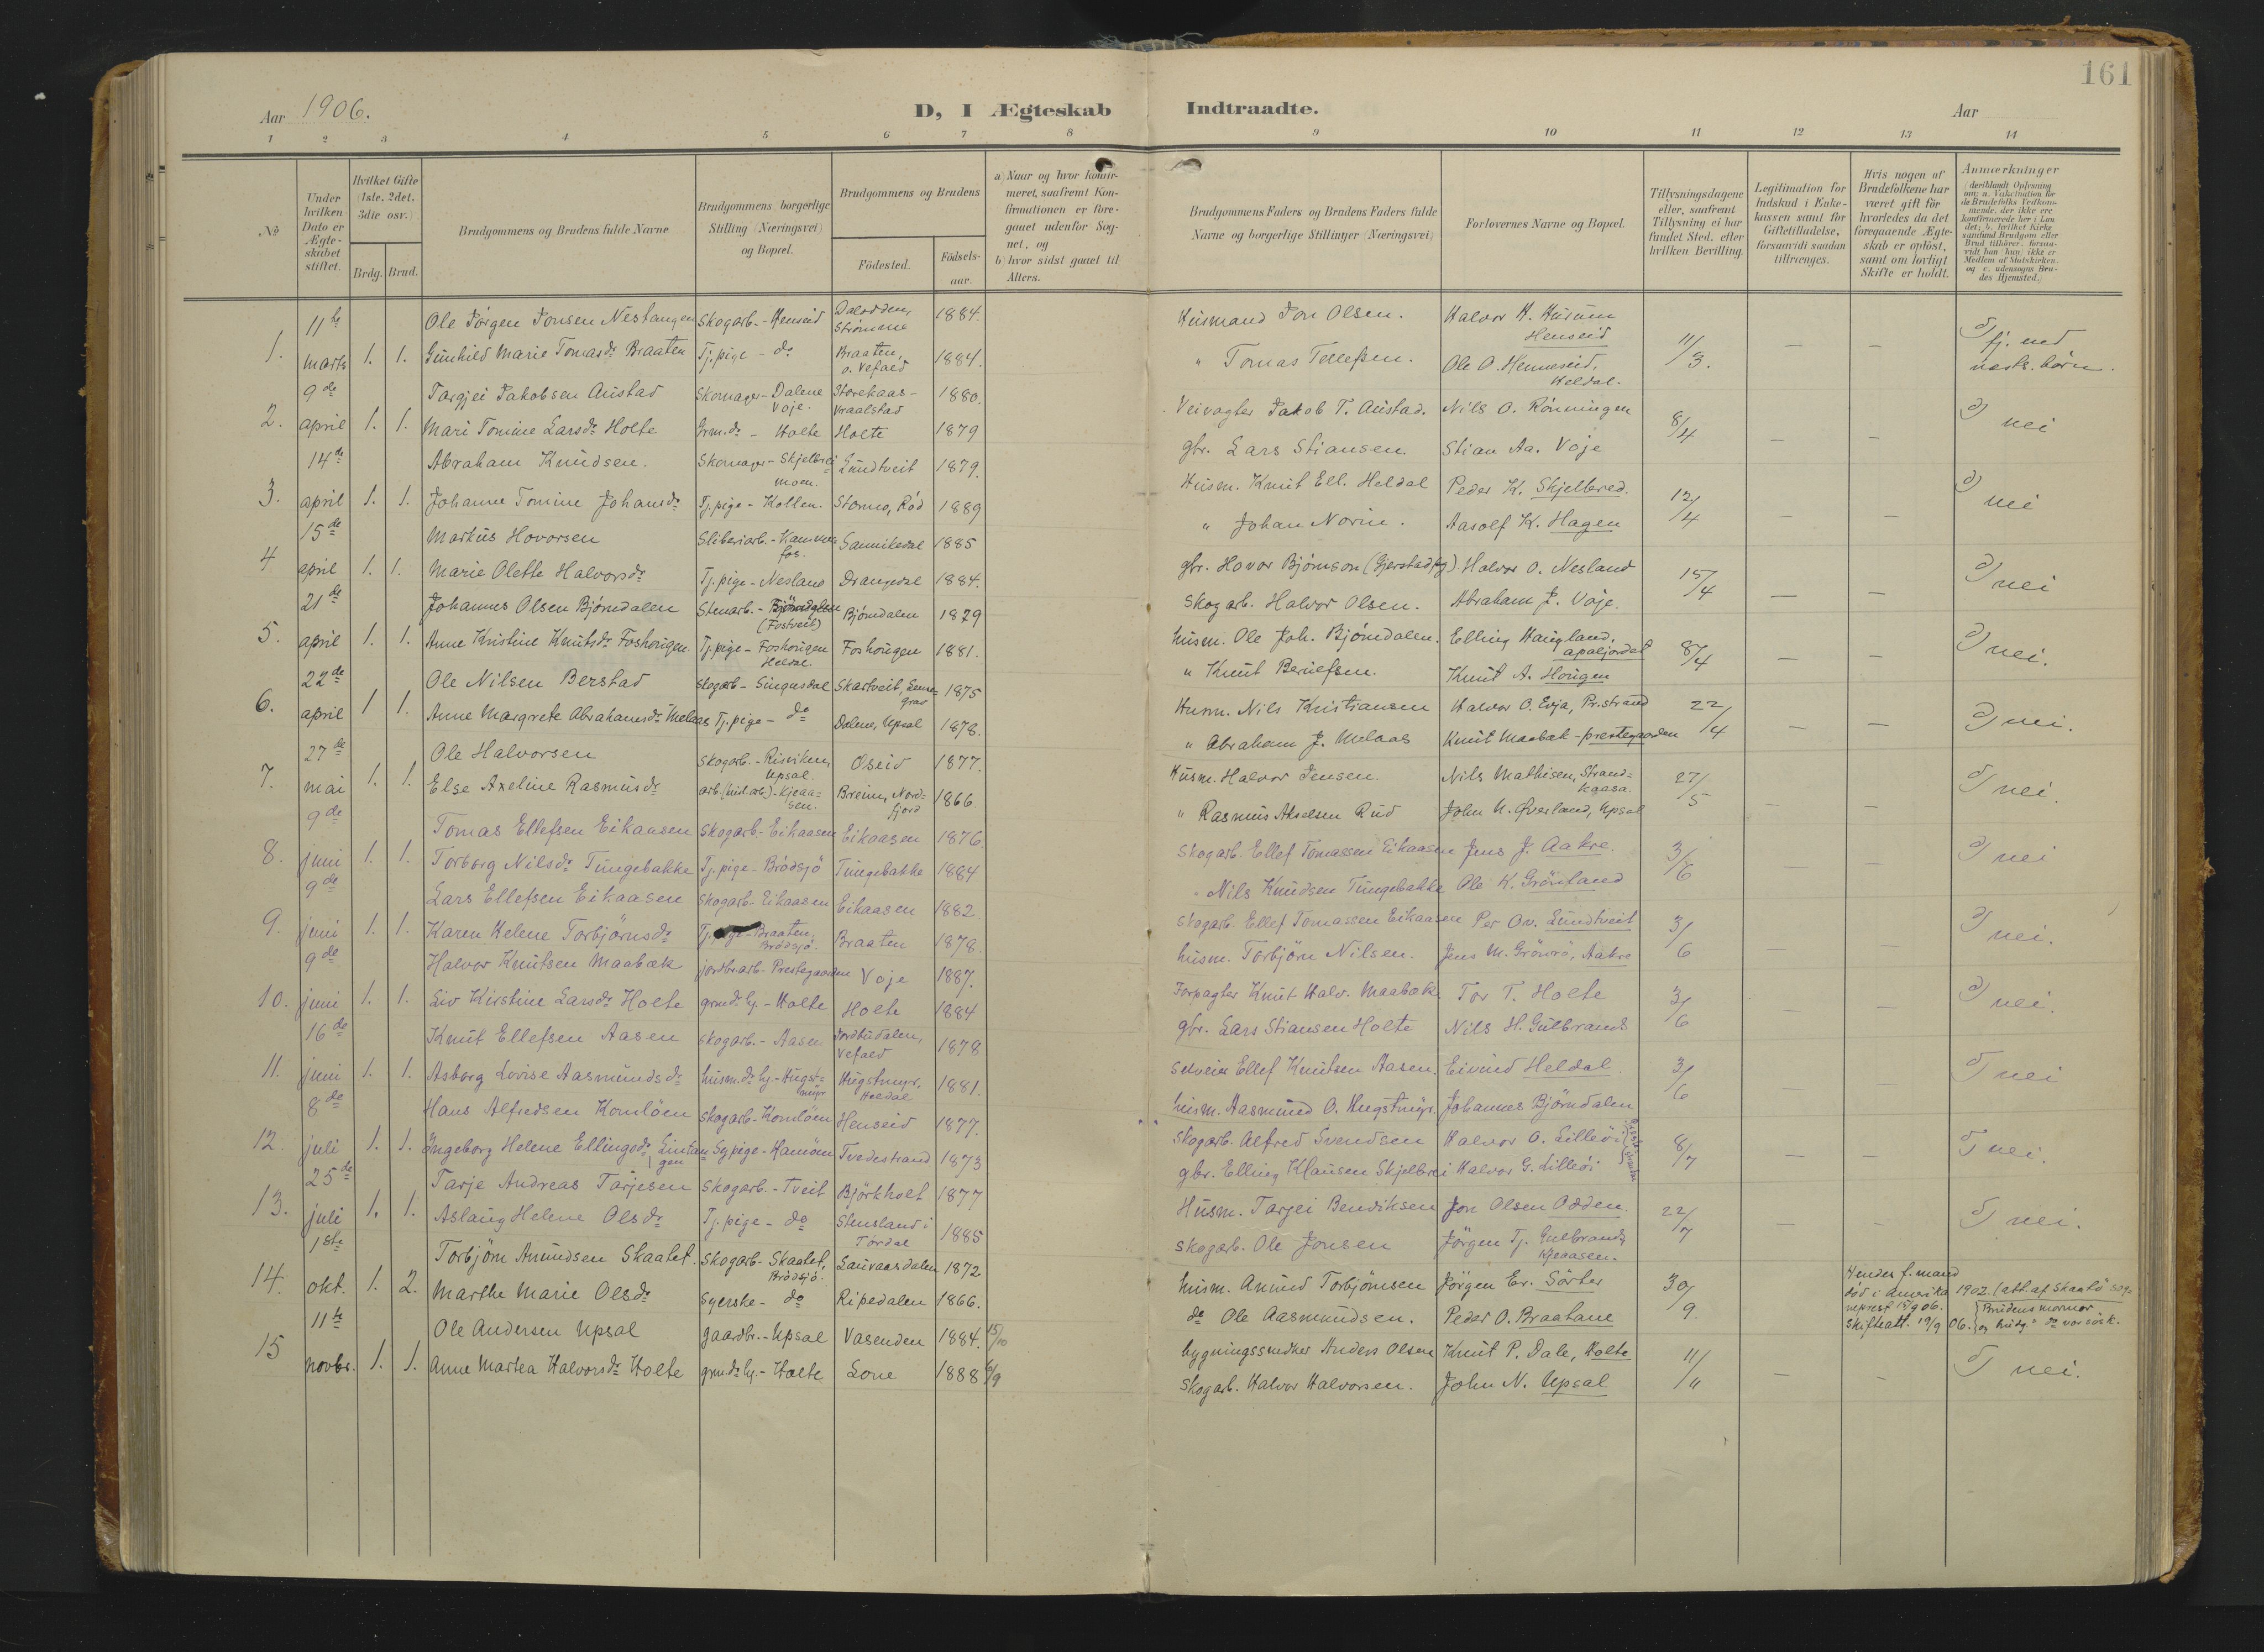 161
Aar 1906.
D, I Ægteskab Indtraadte.
Aar
1 2 3 4 5 6 7 8 9 10 11 12 13 14
No.
Under hvilken Dato er Ægteskabet stiftet.
Hvilket Gifte (1ste, 2det, 3die osv.)
Brdg. Brud.
Brudgommens og Brudens fulde Navne
Brudgommens borgerlige Stilling (Næringsvei) og Bopæl.
Brudgommens og Brudens
Födested.
Födsels-aar.
a) Naar og hvor konfirmeret, saafremt Konfirmationen er foregaaet udenfor Sognet, og
b) hvor sidst gaaet til Alters.
Brudgommens Faders og Brudens Faders fulde Navne og borgerlige Stillinger (Næringsvei)
Forlovernes Navne og Bopæl.
Tillysningsdagene eller, saafremt Tillysning ei har fundet Sted, efter hvilken Bevilling.
Legitimation for Indskud i Enkekassen samt for Giftetilladelse, forsaavidt saadan tiltrænges.
Hvis nogen af Brudefolkene har været gift før hvorledes da det foregaaende Ægteskab er oplöst, samt om lovligt Skifte er holdt.
Anmerkninger
1. 11te marts 1. 1.
Ole Jörgen Jonsen Nestangen Skogarb. - Henseid Dalodden, Strömme 1884. Husmand Jon Olsen. Halvor H. Husum Henseid 11/3.
Gunhild Marie Tomasdr Braaten Tj.pige - do Braaten, o. Vefald 1884. " Tomas Tellefsen. Ole O. Henneseid, Heldal. — — fj. end næsts. börn.
2. 9de april 1. 1.
Targjei Jakobsen Austad Skomager - Dalene Voje. Storekaas - Kraalstad 1880. Veivagter Jakob T. Austad. Nils O. Rönningen 8/4
Mari Tomine Larsdr Holte Grm.dr - Holte Holte 1879 gbr. Lars Stiansen. Stian Aa. Voje — — nei
3. 14de april 1. 1.
Abraham Knudsen. Skomager - Skjelbreimoen. Lundtveit 1879. Husm. Knut Ell. Heldal Peder K. Skjelbred. 12/4
Johanne Tomine Johansdr Tj.pige - Kollen. Stormo, Röd 1889 " Johan Norin. Aasolf K. Hagen — — nei
4. 15de april 1. 1.
Markus Hovorsen Sliberiarb. - Kammerfos. Sannikedal 1885 gbr. Hovor Björnson (Gjerstad pg). Halvor O. Nesland 15/4
Marie Olette Halvorsdr Tj.pige - Nesland Drangedal 1884. Skogarb. Halvor Olsen. Abraham J. Voje. — — nei
5. 21de april 1. 1.
Johannes Olsen Björndalen Stenarb. - Björndalen (Fostveit) Björndalen 1879 husm. Ole Joh. Björndalen. Elling Haugland, apaljordet 8/4
Anne Kristine Knutsdr Foshougen. Tj.pige - Foshougen Heldal. Foshougen 1881. " Knut Beruifsen. Knut A. Hougen — — nei.
6. 22de april 1 1.
Ole Nilsen Berstad Skogarb - Singusdal Skartveit 1875 Husm. Nils Kristiansen Halvor O. Evja, Pr.strand 22/4
Anne Margrete Abrahamsdr Melaas Tj.pige - do Dalene, Upsal 1878. " Abraham J. Melaas Knut Maabæk - prestegaarden — — nei.
7. 27de mai 1. 1.
Ole Halvorsen Skogarb. - Risviken, Upsal. Oseid 1877. Husm. Halvor Jensen. Nils Mathisen, Strandkaasa. 27/5
Else Axeline Rasmusdr Kjeaasen. Breim, Nordfjord 1866. " Rasmus Akselsen Rud John N. Överland, Upsal — — nei.
8. 9de juni 1. 1.
Tomas Ellefsen Eikaasen Skogarb. - Eikaasen Eikaasen 1876. Skogarb. Ellef Tomassen Eikaasen Jens J. Aakre. 3/6
Torborg Nilsdr Tungebakke Tj.pige - Brödsjö Tungebakke 1884 " Nils Knudsen Tungebakke Ole K. Grönland — — nei
9. 9de juni 1. 1.
Lars Ellefsen Eikaasen Skogarb. Eikaasen Eikaasen 1882 Skogarb. Ellef Tomassen Eikaasen Per Ov. Lundtveit 3/6
Karen Helene Torbjörnsdr Tj.pige - Braaten, Brödsjö. Braaten 1878. husm. Torbjörn Nilsen. Jens M. Grönrö, Aakre — — nei.
10. 9de juni 1. 1.
Halvor Knutsen Maabæk jordbr.arb. Prestegaarden Voje 1887. Forpagter Knut Halv. Maabæk Tor T. Holte 3/6
Liv Kirstine Larsdr Holte grmdr hj. - Holte Holte 1884 gbr. Lars Stiansen Holte Nils H. Gulbrands — — nei.
11. 16de juni 1. 1.
Knut Ellefsen Aasen Skogarb. - Aasen Jordbudalen, Vefald 1878 Selveier Ellef Knutsen Aasen. Eivind Heldal 3/6
Asborg Lovise Aasmundsdr husm.dr hj. - Hugstmyr Hugstmyr. Heldal 1881. husm. Aasmund O. Hugstmyr. Johannes Björndalen — — nei
12. 8de juli 1. 1.
Hans Alfredsen Komlöen Skogarb. Komlöen Henseid 1877. Skogarb. Alfred Svendsen Halvor O. Lilleöi 8/7
Ingeborg Helene Ellingsdr Lintangen Sypige - Kamöen Tvedestrand 1873 gbr. Elling Klausen Skjelbrei Halvor G. Lilleöi — — nei.
13. 25de juli 1. 1.
Tarje Andreas Tarjesen Skogarb. - Tveit Björkholt 1877 Husm. Tarjei Bendiksen Jon Olsen Odden. 22/7
Aslaug Helene Olsdr Tj.pige - do Stensland i Tördal 1885 Skogarb. Ole Jonsen Jörgen Tj. Gulbrands Kjeaasen. — — nei.
14. 1ste okt. 1. 2.
Torbjörn Amundsen Skaatet. Skogarb - Skaatet, Brödsjö. Lauvaasdalen 1872 husm. Amund Torbjörnsen Jörgen Er. Sörter 30/9.
Marthe Marie Olsdr Syerske - do Ripedalen 1866. do Ole Aasmundsen. Peder O. Braatane
Hendes f. mand död i Amerika 1902. (att. af Skaatö sogneprest 15/9 06. Skifteatt. 19/9 06. Brudens mormor og brudg.s do var sösk.
15 11te novbr. 1. 1.
Ole Andersen Upsal gaardbr. - Upsal Vasenden 1884. 15/10 bygningssnedker Anders Olsen Knut P. Dale, Holte 11/11
Anne Martea Halvorsdr Holte grm.dr hj. - Holte Lone 1888 6/9 Skogarb. Halvor Halvorsen. John N. Upsal — — nei.